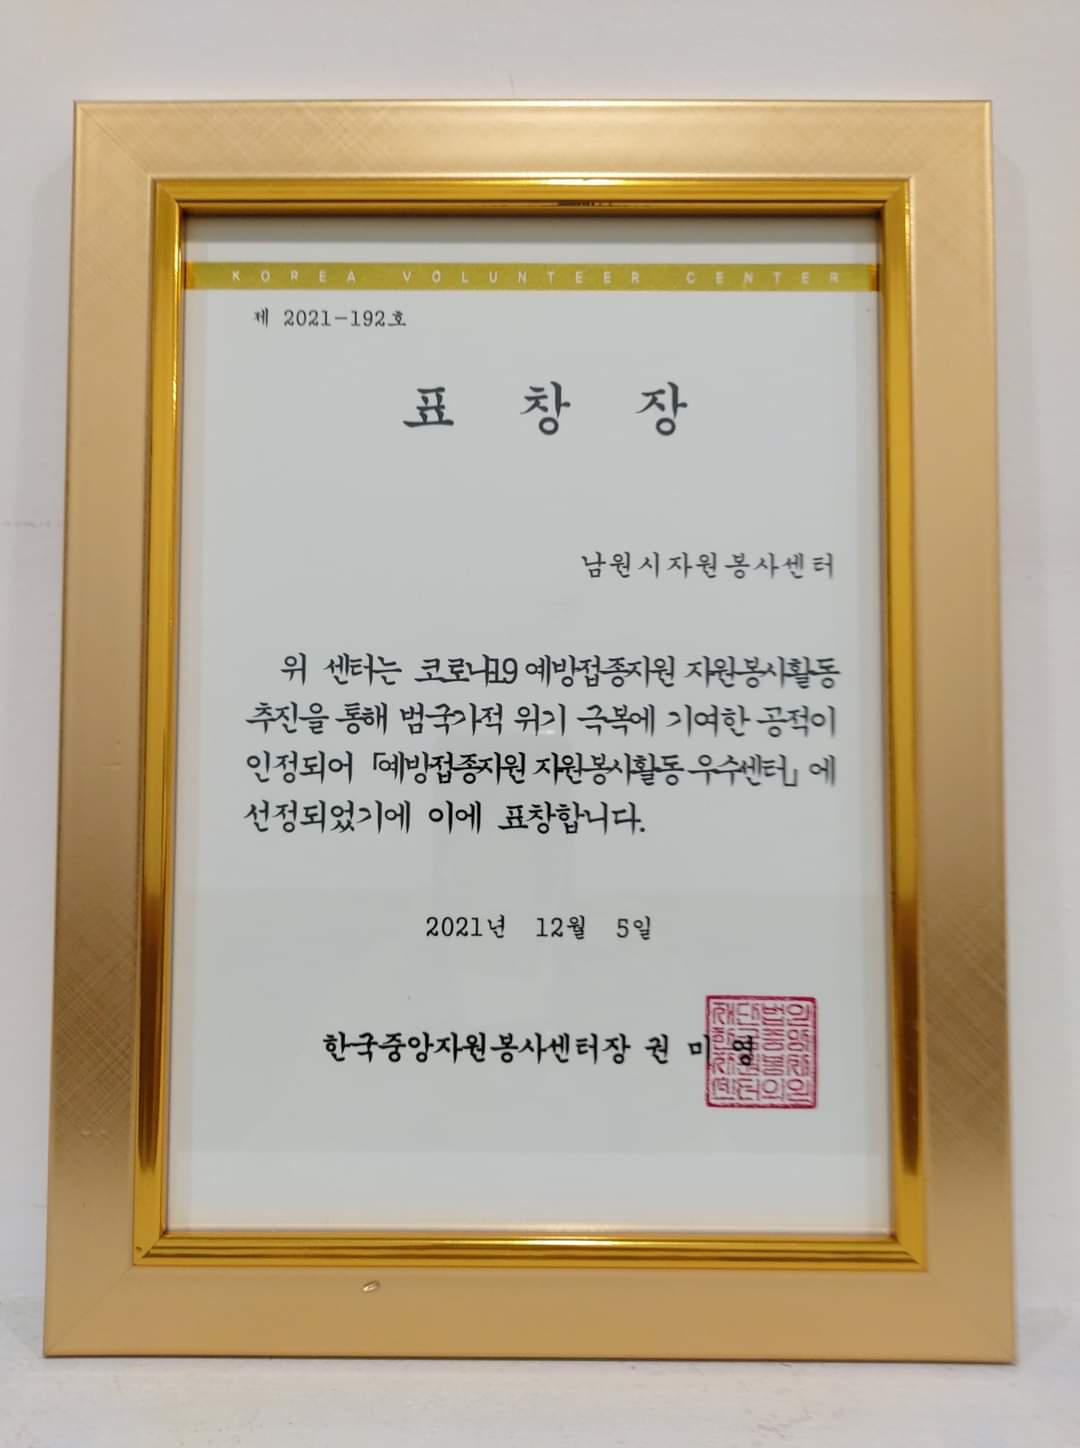 KOREA VOLUNTEER CENTER
제 2021-192호
표 창 장
남원시자원봉사센터
위 센터는 코로나19 예방접종지원 자원봉사활동
추진을 통해 범국가적 위기 극복에 기여한 공적이
인정되어 「예방접종지원 자원봉사활동 우수센터」에
선정되었기에 이에 표창합니다.
2021년 12월 5일
한국중앙자원봉사센터장 권 미 영
재단법인
한국중앙
자원봉사
센터의인